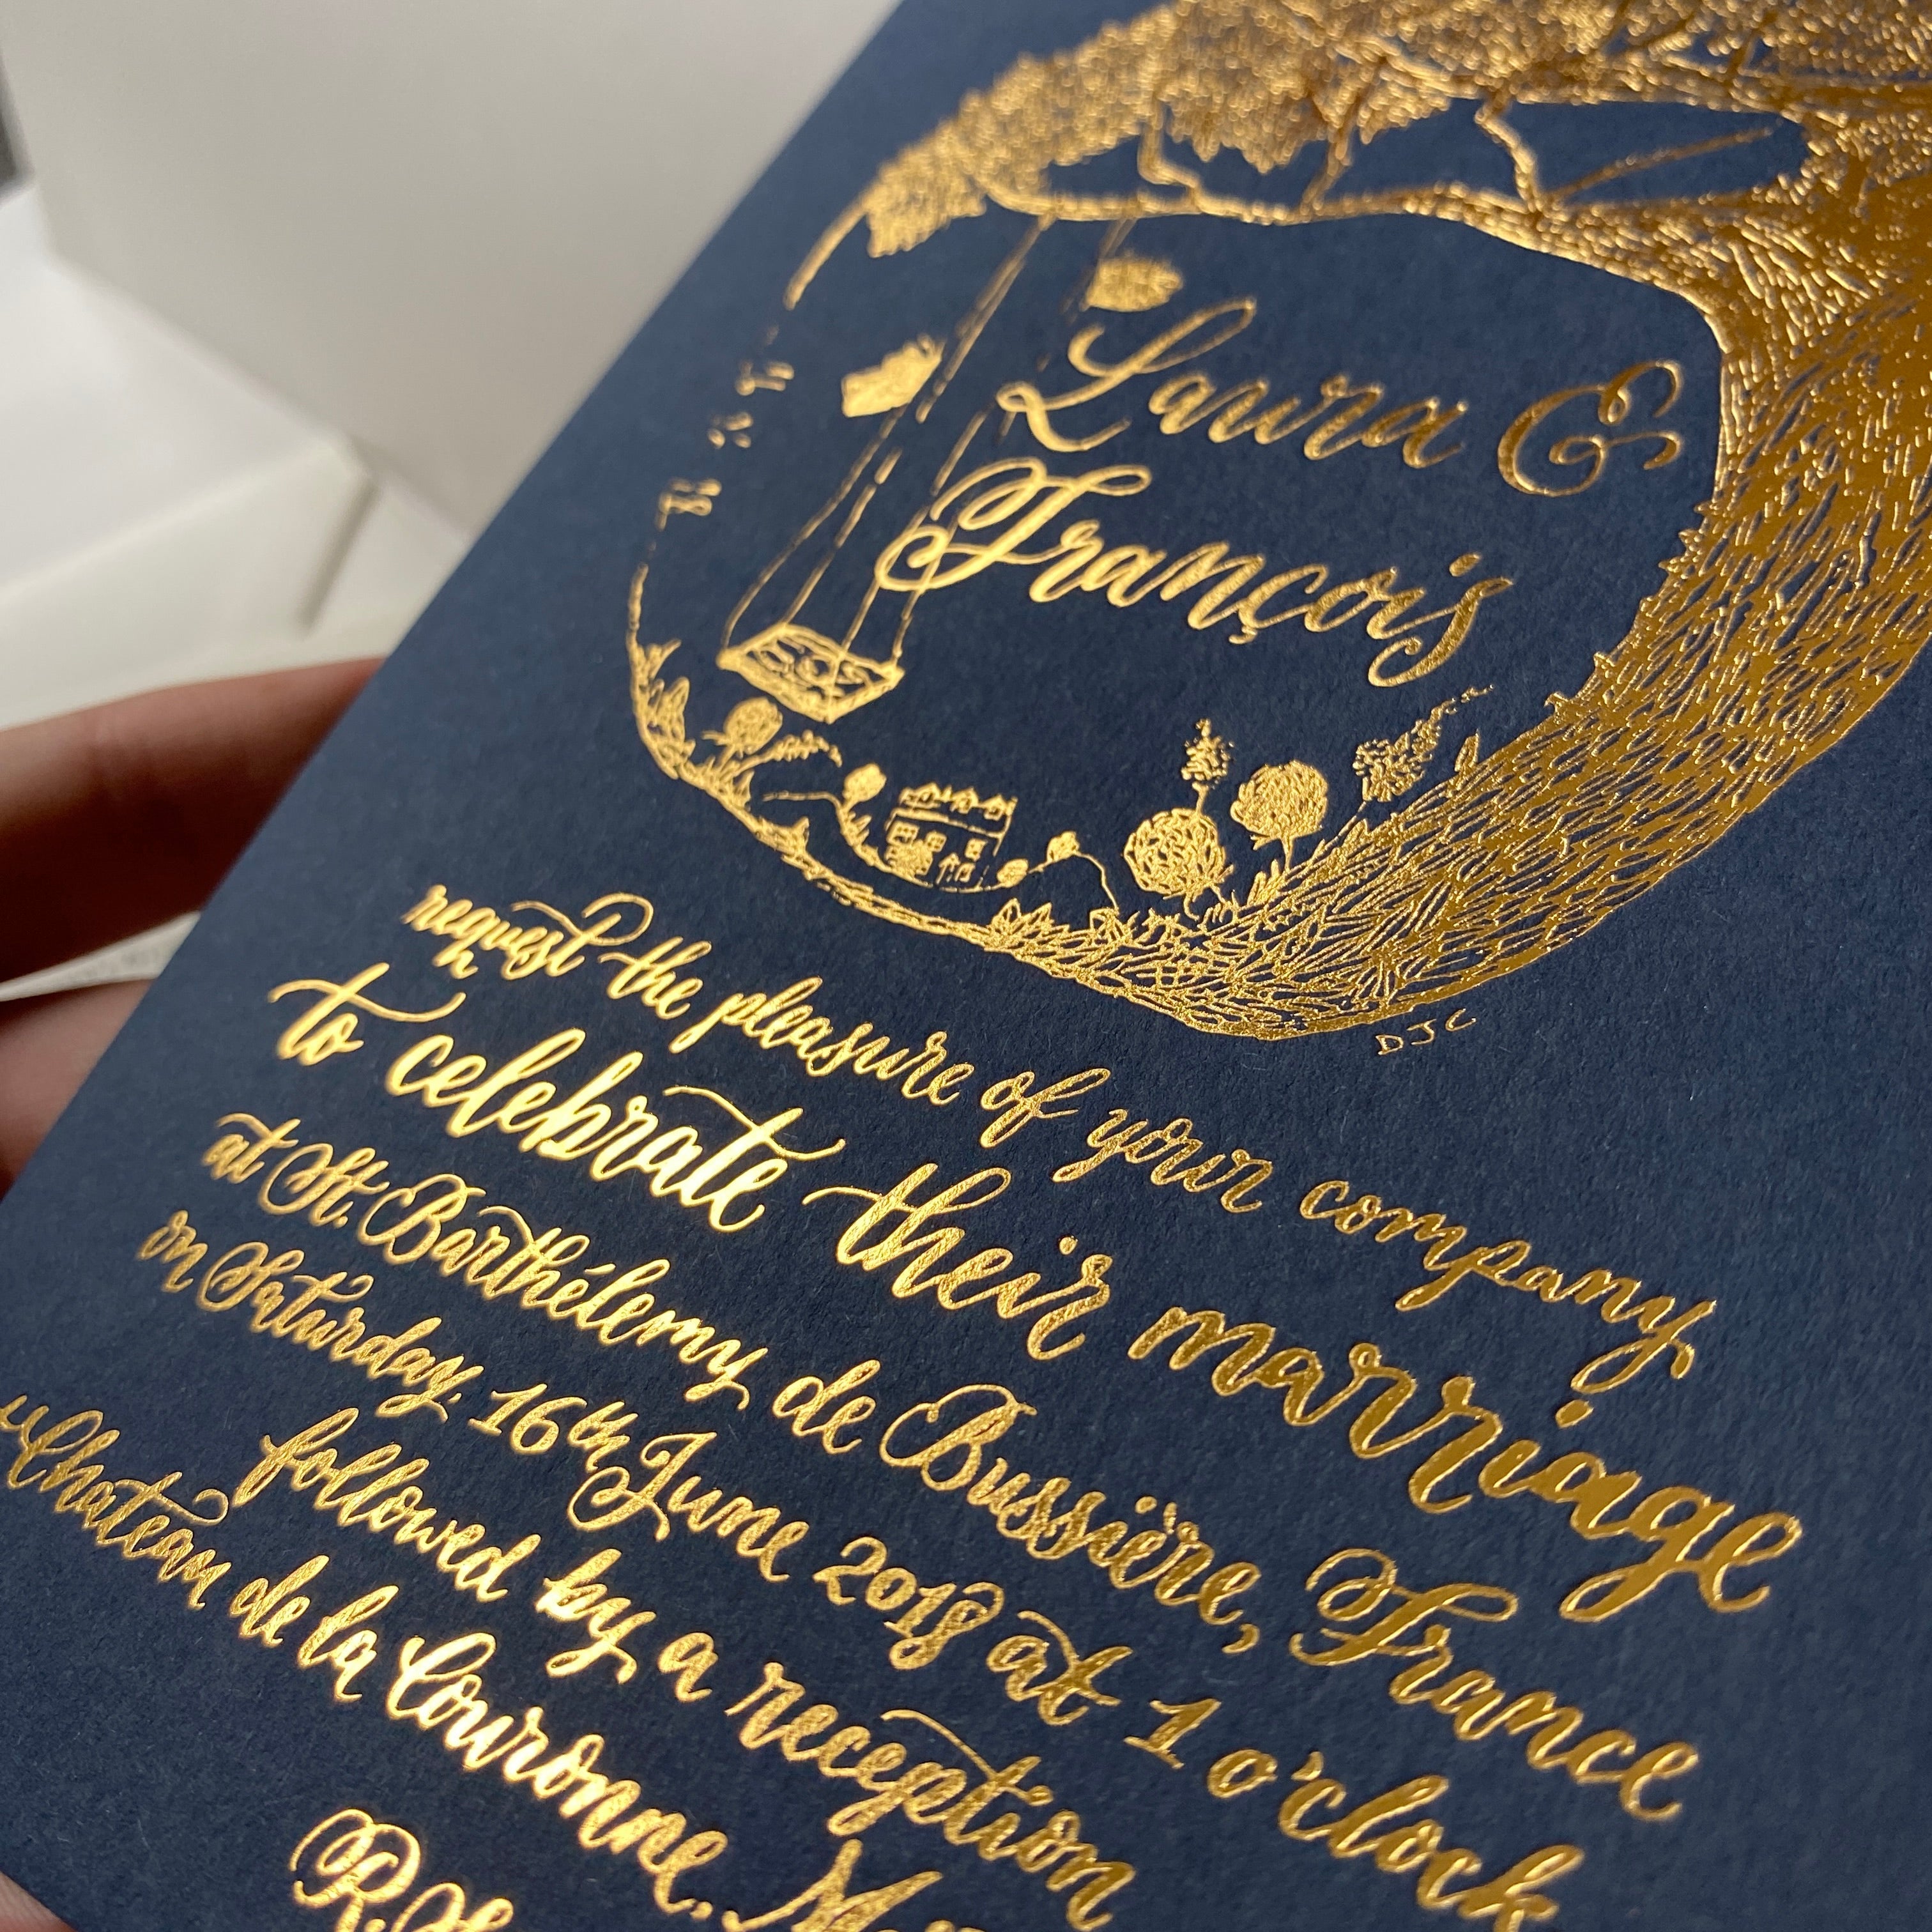 Laura &
François
DJC
request the pleasure of your company
to celebrate their marriage
at St. Barthélemy de Bussière, France
on Saturday, 16th June 2018 at 1 o'clock
followed by a reception
Chateau de la Couronne,